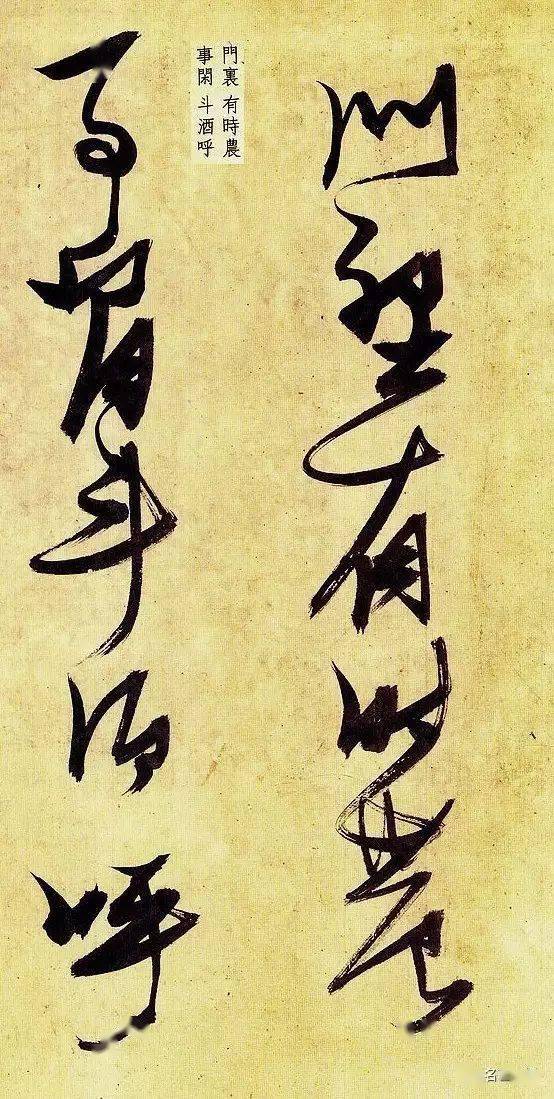 門裏有時農
門裏 有時農
事閑 斗酒呼
事閒斗酒呼
名